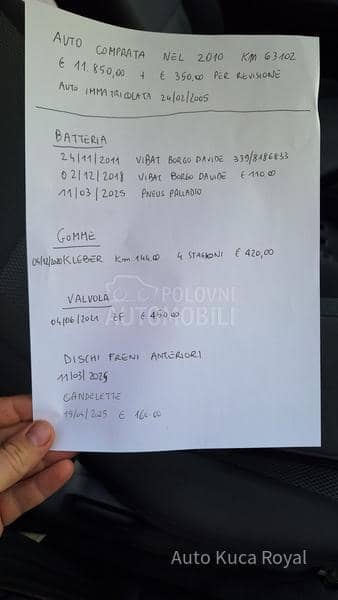 AUTO COMPRATA NEL 2010 KM 63102
€ 11.850,00 + € 350,00 PER REVISIONE
AUTO IMMATRICOLATA 24/02/2005
BATTERIA
24/11/2011 VIBAT BORGO DAVIDE 339/8186833
02/12/2018 VIBAT BORGO DAVIDE € 110.00
11/03/2025 PNEUS PALLADIO
GOMME
KLEBER Km 144.00 4 STAGIONI € 420,00
VALVOLA
04/06/2021 EGF € 450,00
POLOVNI
AUTOMOBILI
DISCHI FRENI ANTERIORI
11/03/2025
CANDELETTE
19/04/2025 € 160.00
Auto Kuca Royal